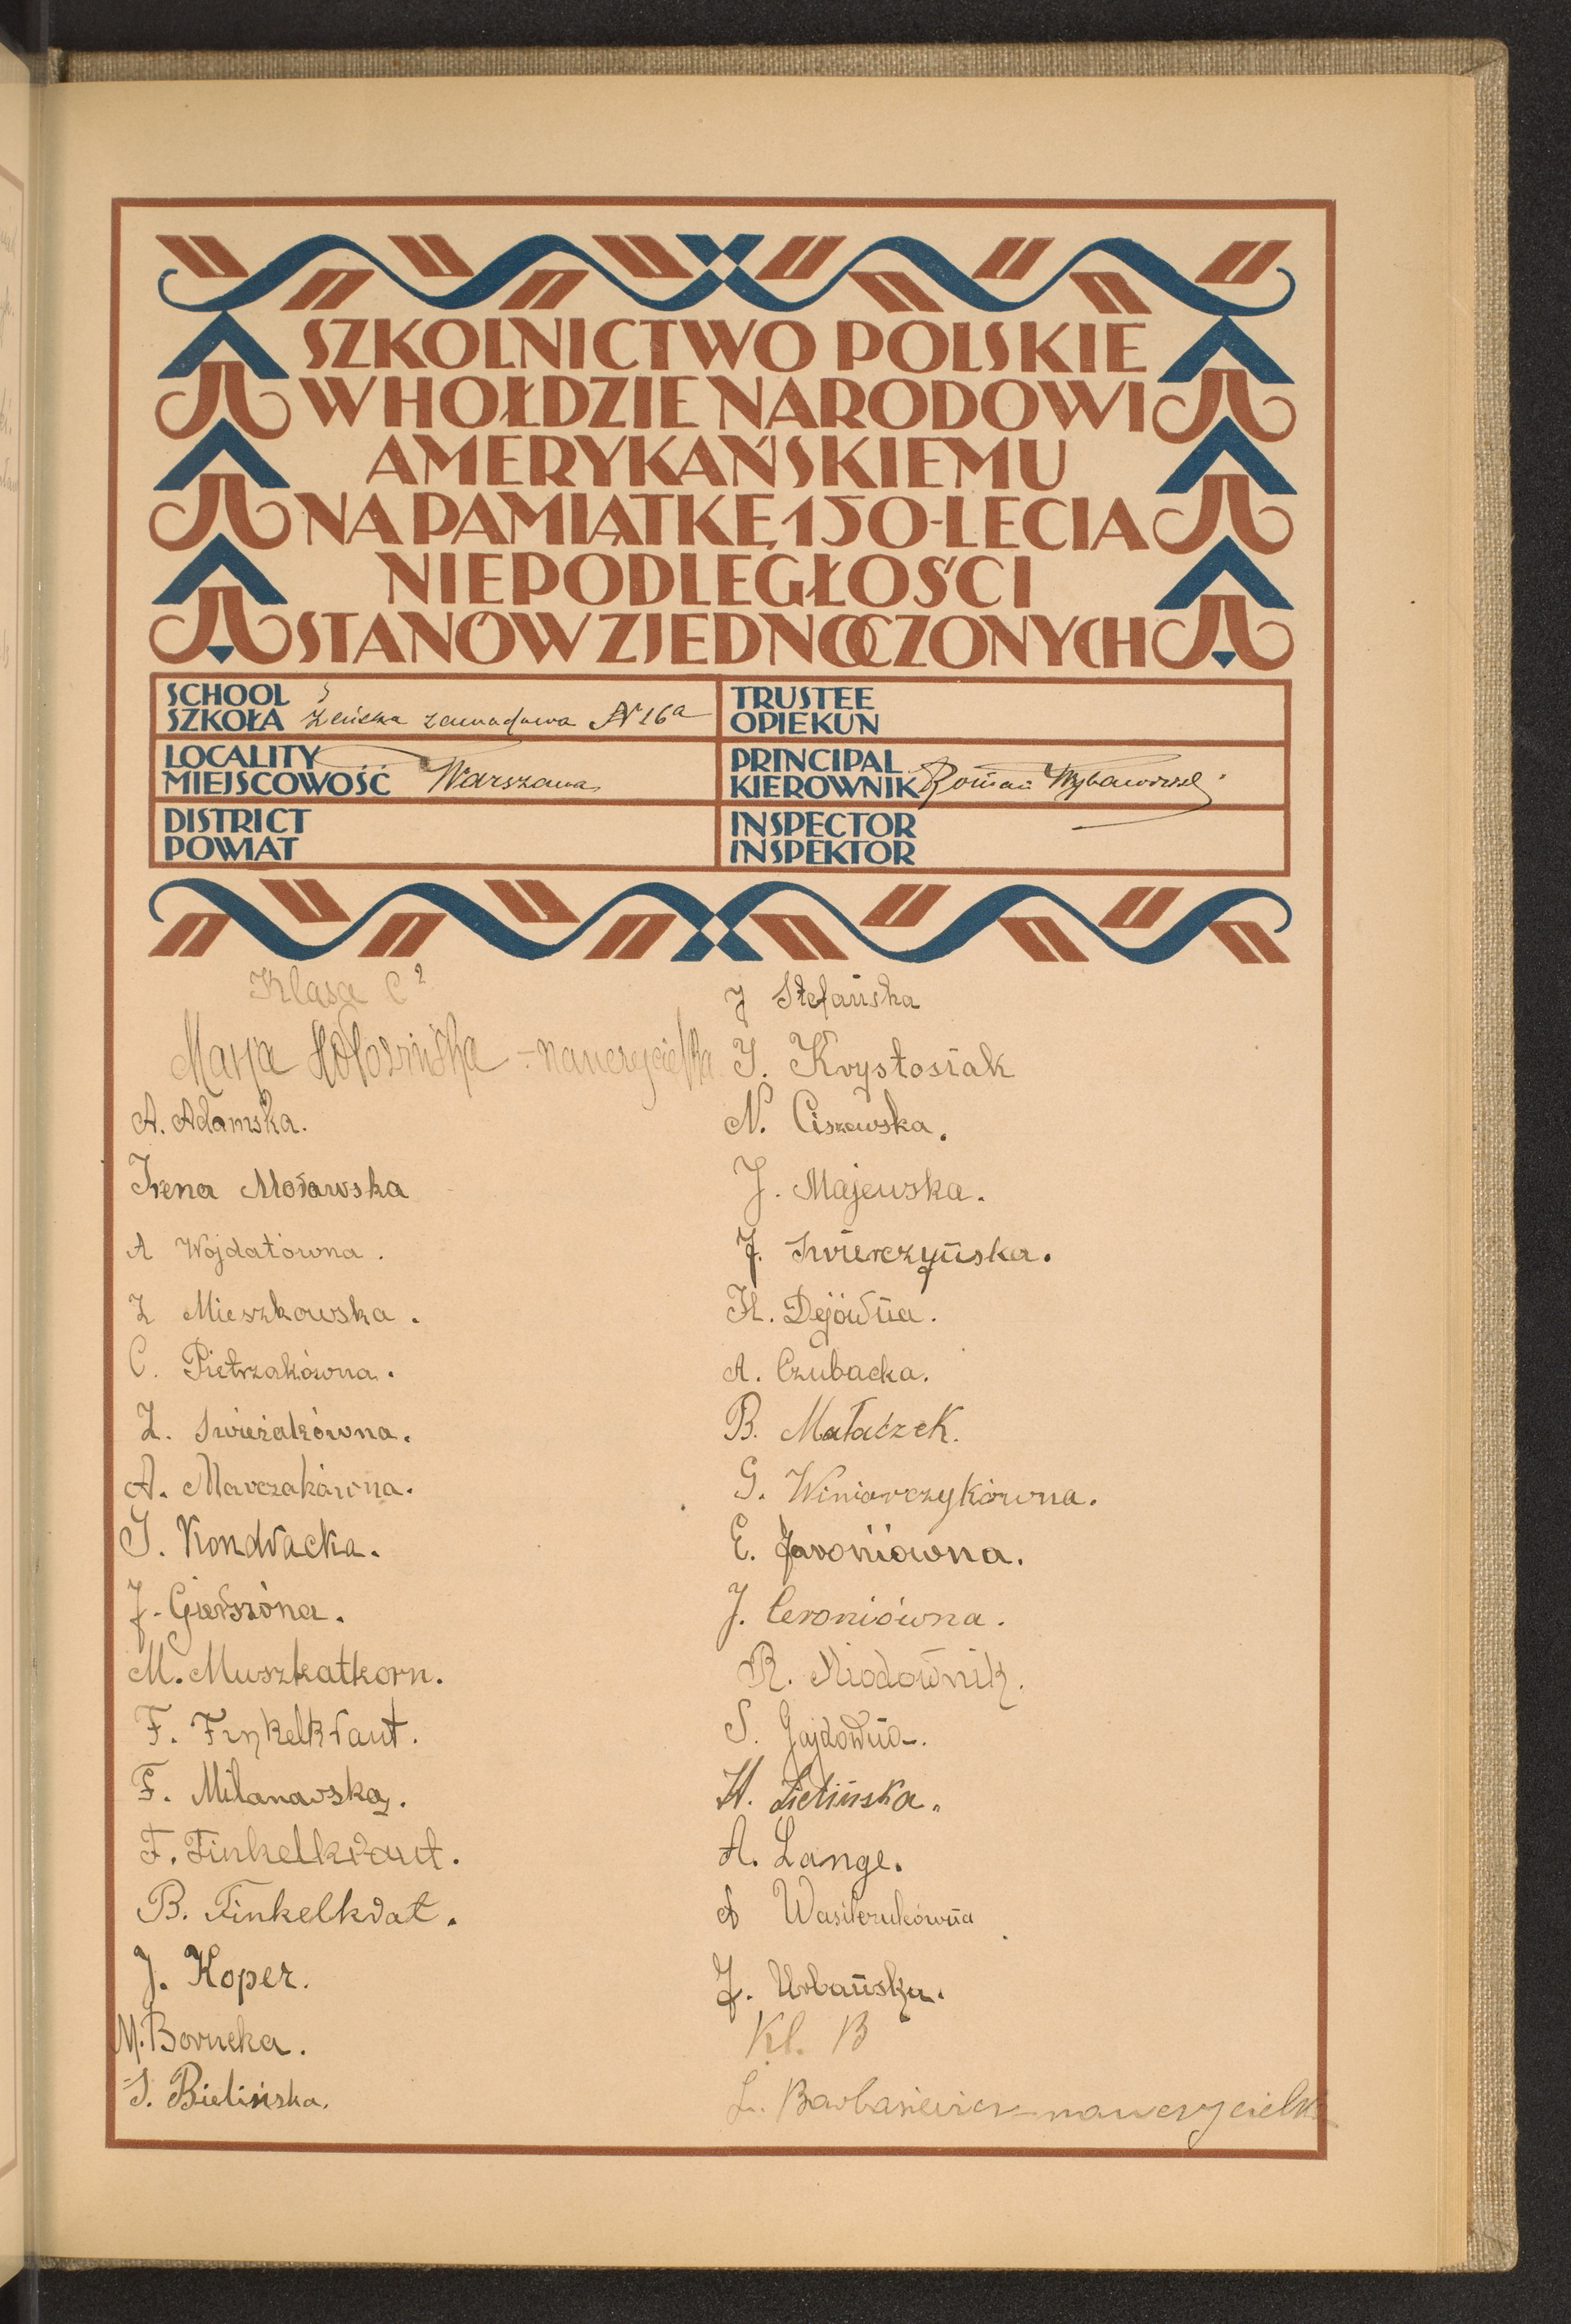 SZKOLNICTWO POLSKIE
W HOŁDZIE NARODOWI
AMERYKAŃSKIEMU
NA PAMIĄTKĘ 150-LECIA
NIEPODLEGŁOŚCI
STANÓW ZJEDNOCZONYCH
SCHOOL
SZKOŁA Żeńska zawodowa N 16a
TRUSTEE
OPIEKUN
LOCALITY
MIEJSCOWOŚĆ Warszawa
PRINCIPAL
KIEROWNIK Roman
DISTRICT
POWIAT
INSPECTOR
INSPEKTOR
Klasa C2
Marja - nauczycielka
A. Adamska.
Irena Morawska
A Wojdatówna.
Z Mieszkowska.
C. Pietrzakówna.
Z. Świeżakówna.
A. Marczakówna.
I. Kondracka.
J. Gierszóna.
M. Muszkatkorn.
F. Finkelkraut.
F. Milanowska.
F. Finkelkraut.
B. Finkelkrat.
J. Koper.
M. Borucka.
S. Bielińska.
J Stefańska
I. Krystosiak
N. Ciszewska.
J. Majewska.
J. Świerczyńska.
H. Dejówna.
A. Czubacka.
B. Małaczek.
G. Winiarczykówna.
E. Jaroniówna.
J. Ceroniówna.
R. Miodownik.
S. Gajdówna.
H. Zielińska.
A. Lange.
A Wasilczukówna
J. Urbańska.
Kl. B
L. Barbasiewicz - nauczycielka